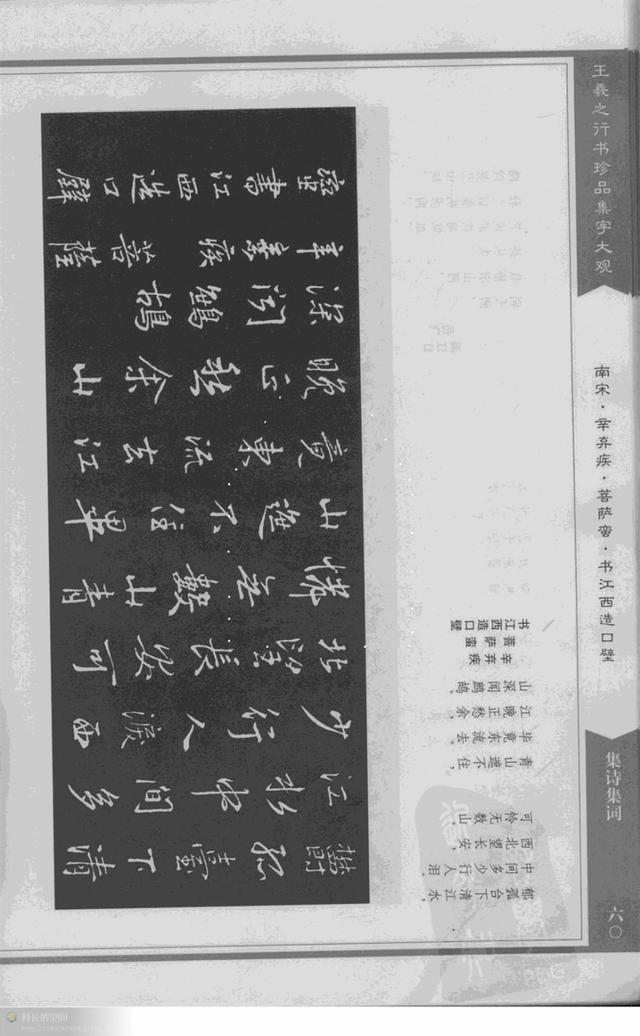 王羲之行书珍品集字大观
南宋·辛弃疾·菩萨蛮·书江西造口壁
集诗集词
六〇
鬱孤臺下清
江水中間多
少行人淚西
北望長安可
憐無數山青
山遮不住畢
竟東流去江
晚正愁余山
深聞鷓鴣
辛棄疾菩薩
蠻書江西造口壁
郁孤台下清江水，
中间多少行人泪。
西北望长安，
可怜无数山。
青山遮不住，
毕竟东流去。
江晚正愁余，
山深闻鹧鸪。
辛弃疾
菩萨蛮
书江西造口壁
科长的空间